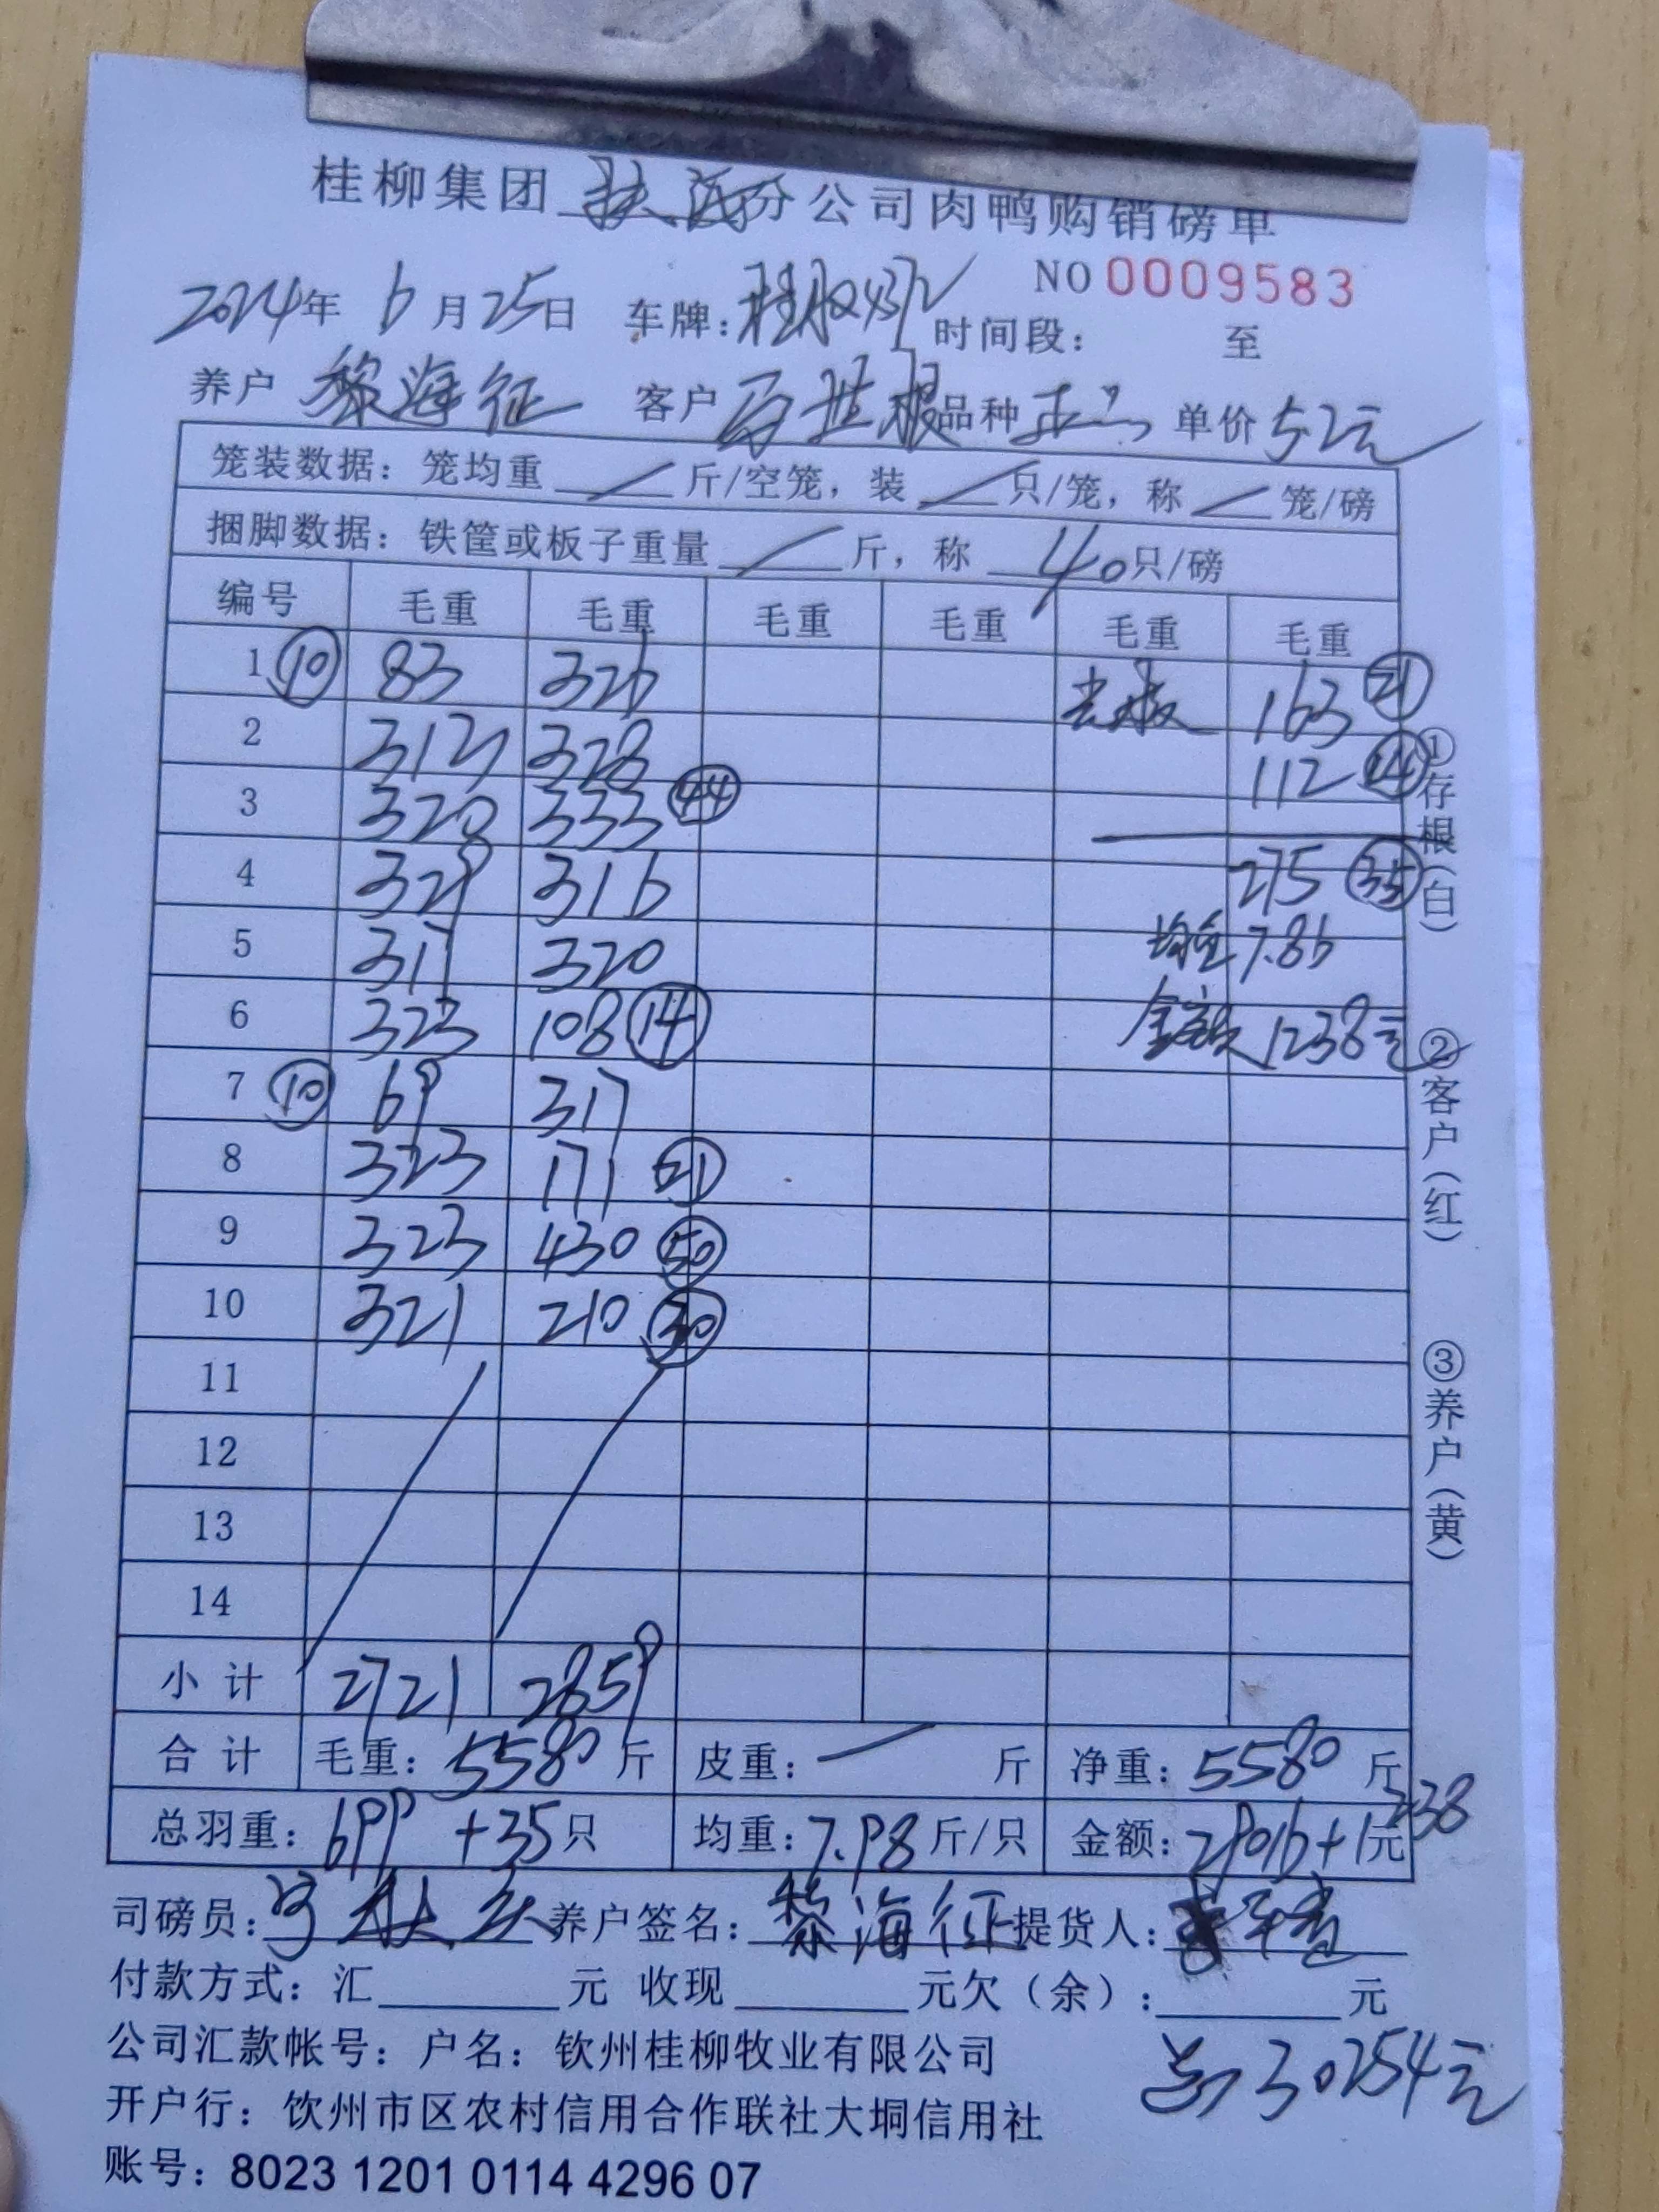 桂柳集团 扶 分公司肉鸭购销磅单
NO 0009583
2024年 6月25日 车牌: 时间段: 至
养户 黎海征 客户 品种 单价 5.2元
笼装数据: 笼均重 / 斤/空笼, 装 / 只/笼, 称 / 笼/磅
捆脚数据: 铁筐或板子重量 / 斤, 称 40只/磅
编号 毛重 毛重 毛重 毛重 毛重 毛重
1 ⑩ 83 326 163 ㉑
2 313 328 112 ⑭
3 320 333 ㊹
4 329 316 275 ㉟
5 317 320 均重 7.86
6 323 108 ⑭ 金额 1238元
7 ⑩ 69 317
8 323 171 ㉑
9 323 430 ㊿
10 321 210 ㉚
11
12
13
14
小计 2721 2859
合计 毛重: 5580 斤 皮重: 斤 净重: 5580 斤
总羽重: 699 +35只 均重: 7.98斤/只 金额: 29016+1238元
司磅员: 养户签名: 黎海征 提货人:
付款方式: 汇 元 收现 元欠(余): 元
公司汇款帐号: 户名: 钦州桂柳牧业有限公司
总 30254元
开户行: 饮州市区农村信用合作联社大垌信用社
账号: 8023 1201 0114 4296 07
①存根(白)
②客户(红)
③养户(黄)